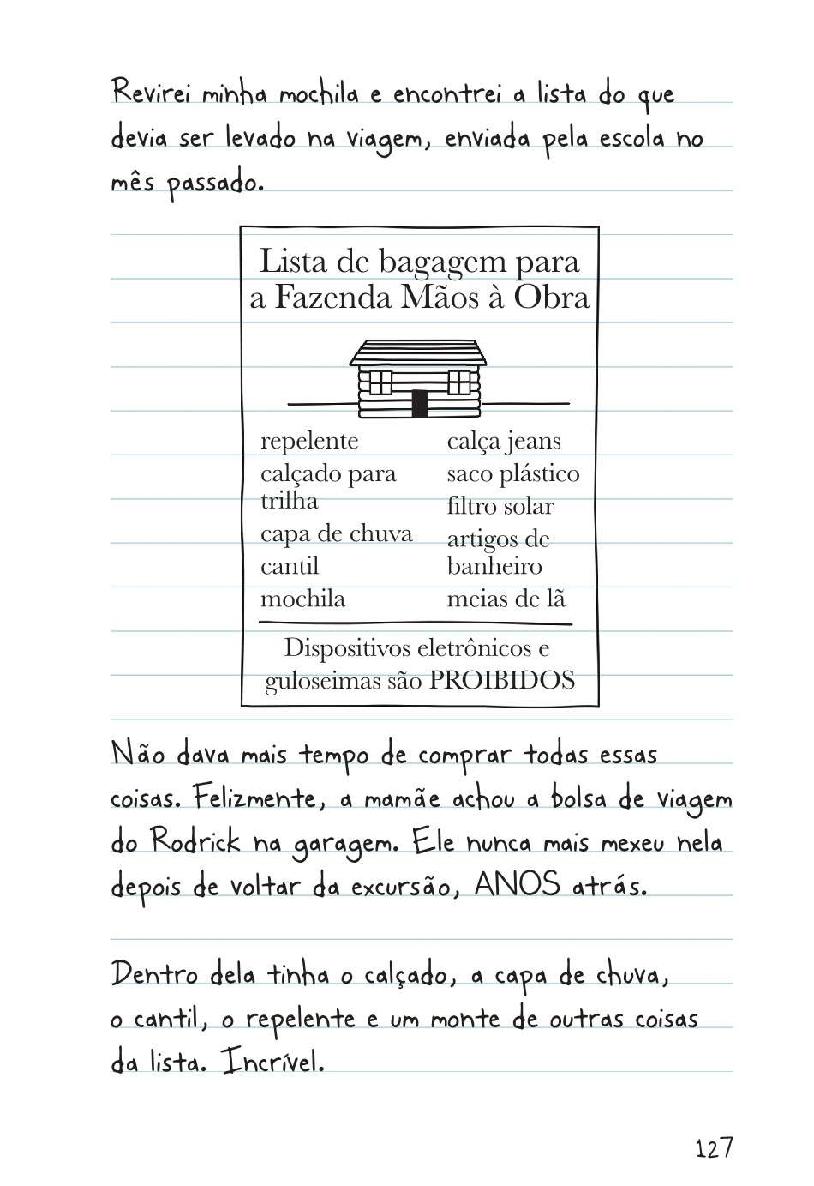 Revirei minha mochila e encontrei a lista do que
devia ser levado na viagem, enviada pela escola no
mês passado.
Lista de bagagem para
a Fazenda Mãos à Obra
repelente
calçado para
trilha
capa de chuva
cantil
mochila
calça jeans
saco plástico
filtro solar
artigos de
banheiro
meias de lã
Dispositivos eletrônicos e
guloseimas são PROIBIDOS
Não dava mais tempo de comprar todas essas
coisas. Felizmente, a mamãe achou a bolsa de viagem
do Rodrick na garagem. Ele nunca mais mexeu nela
depois de voltar da excursão, ANOS atrás.
Dentro dela tinha o calçado, a capa de chuva,
o cantil, o repelente e um monte de outras coisas
da lista. Incrível.
127